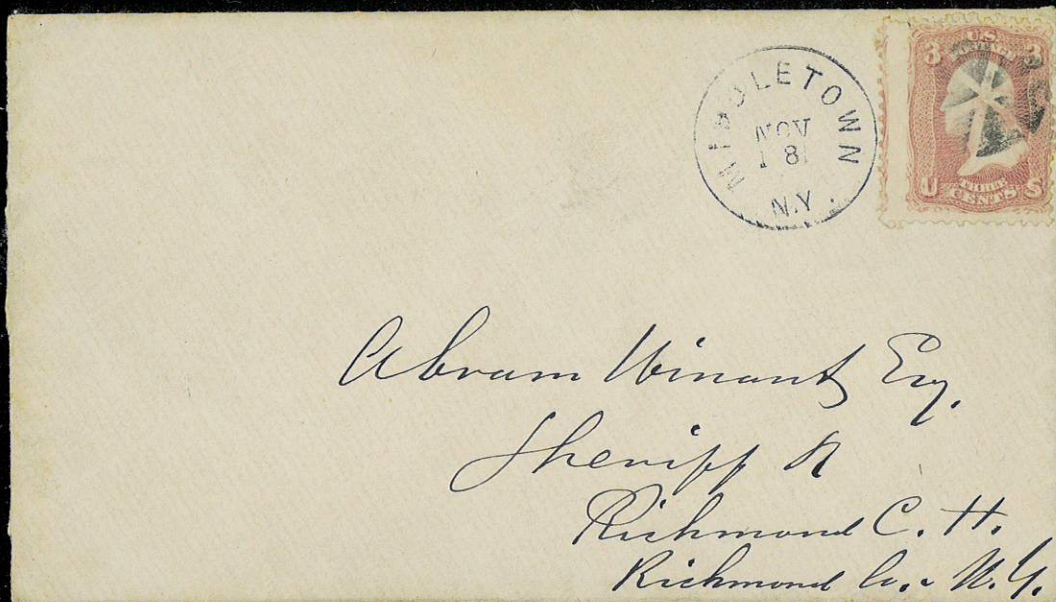 MIDDLETOWN
NOV
18
N.Y.
U.S. POSTAGE
3 3
U THREE CENTS S
Abram Winant Esq.
Sheriff &
Richmond C. H.
Richmond Co. N.Y.